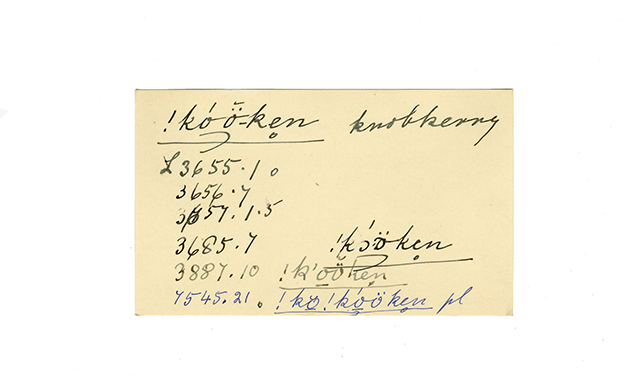 !kó̤ö̆-kẹn knobkerry
L 3655.10
3656.7
3657.1.5
3685.7 !kó̤ökẹn
3887.10 !k'o̤ökẹn
7545.21. !ko̤!kó̤ökẹn pl